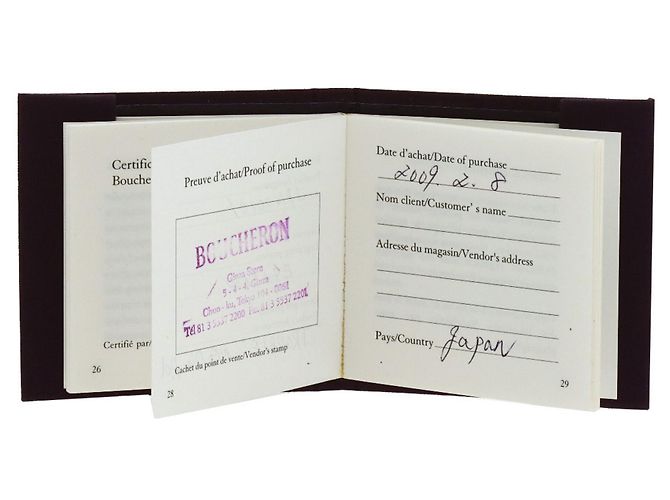 Certifi
Bouche
Certifié par/
26
Preuve d'achat/Proof of purchase
BOUCHERON
Ginza Store
5-4-4, Ginza
Chuo-ku, Tokyo 104-0061
Tél 81 3 5537 2200 Fax 81 3 5537 2201
Cachet du point de vente/Vendor's stamp
28
Date d'achat/Date of purchase
2009. 2. 8
Nom client/Customer' s name
Adresse du magasin/Vendor's address
Pays/Country Japan
29